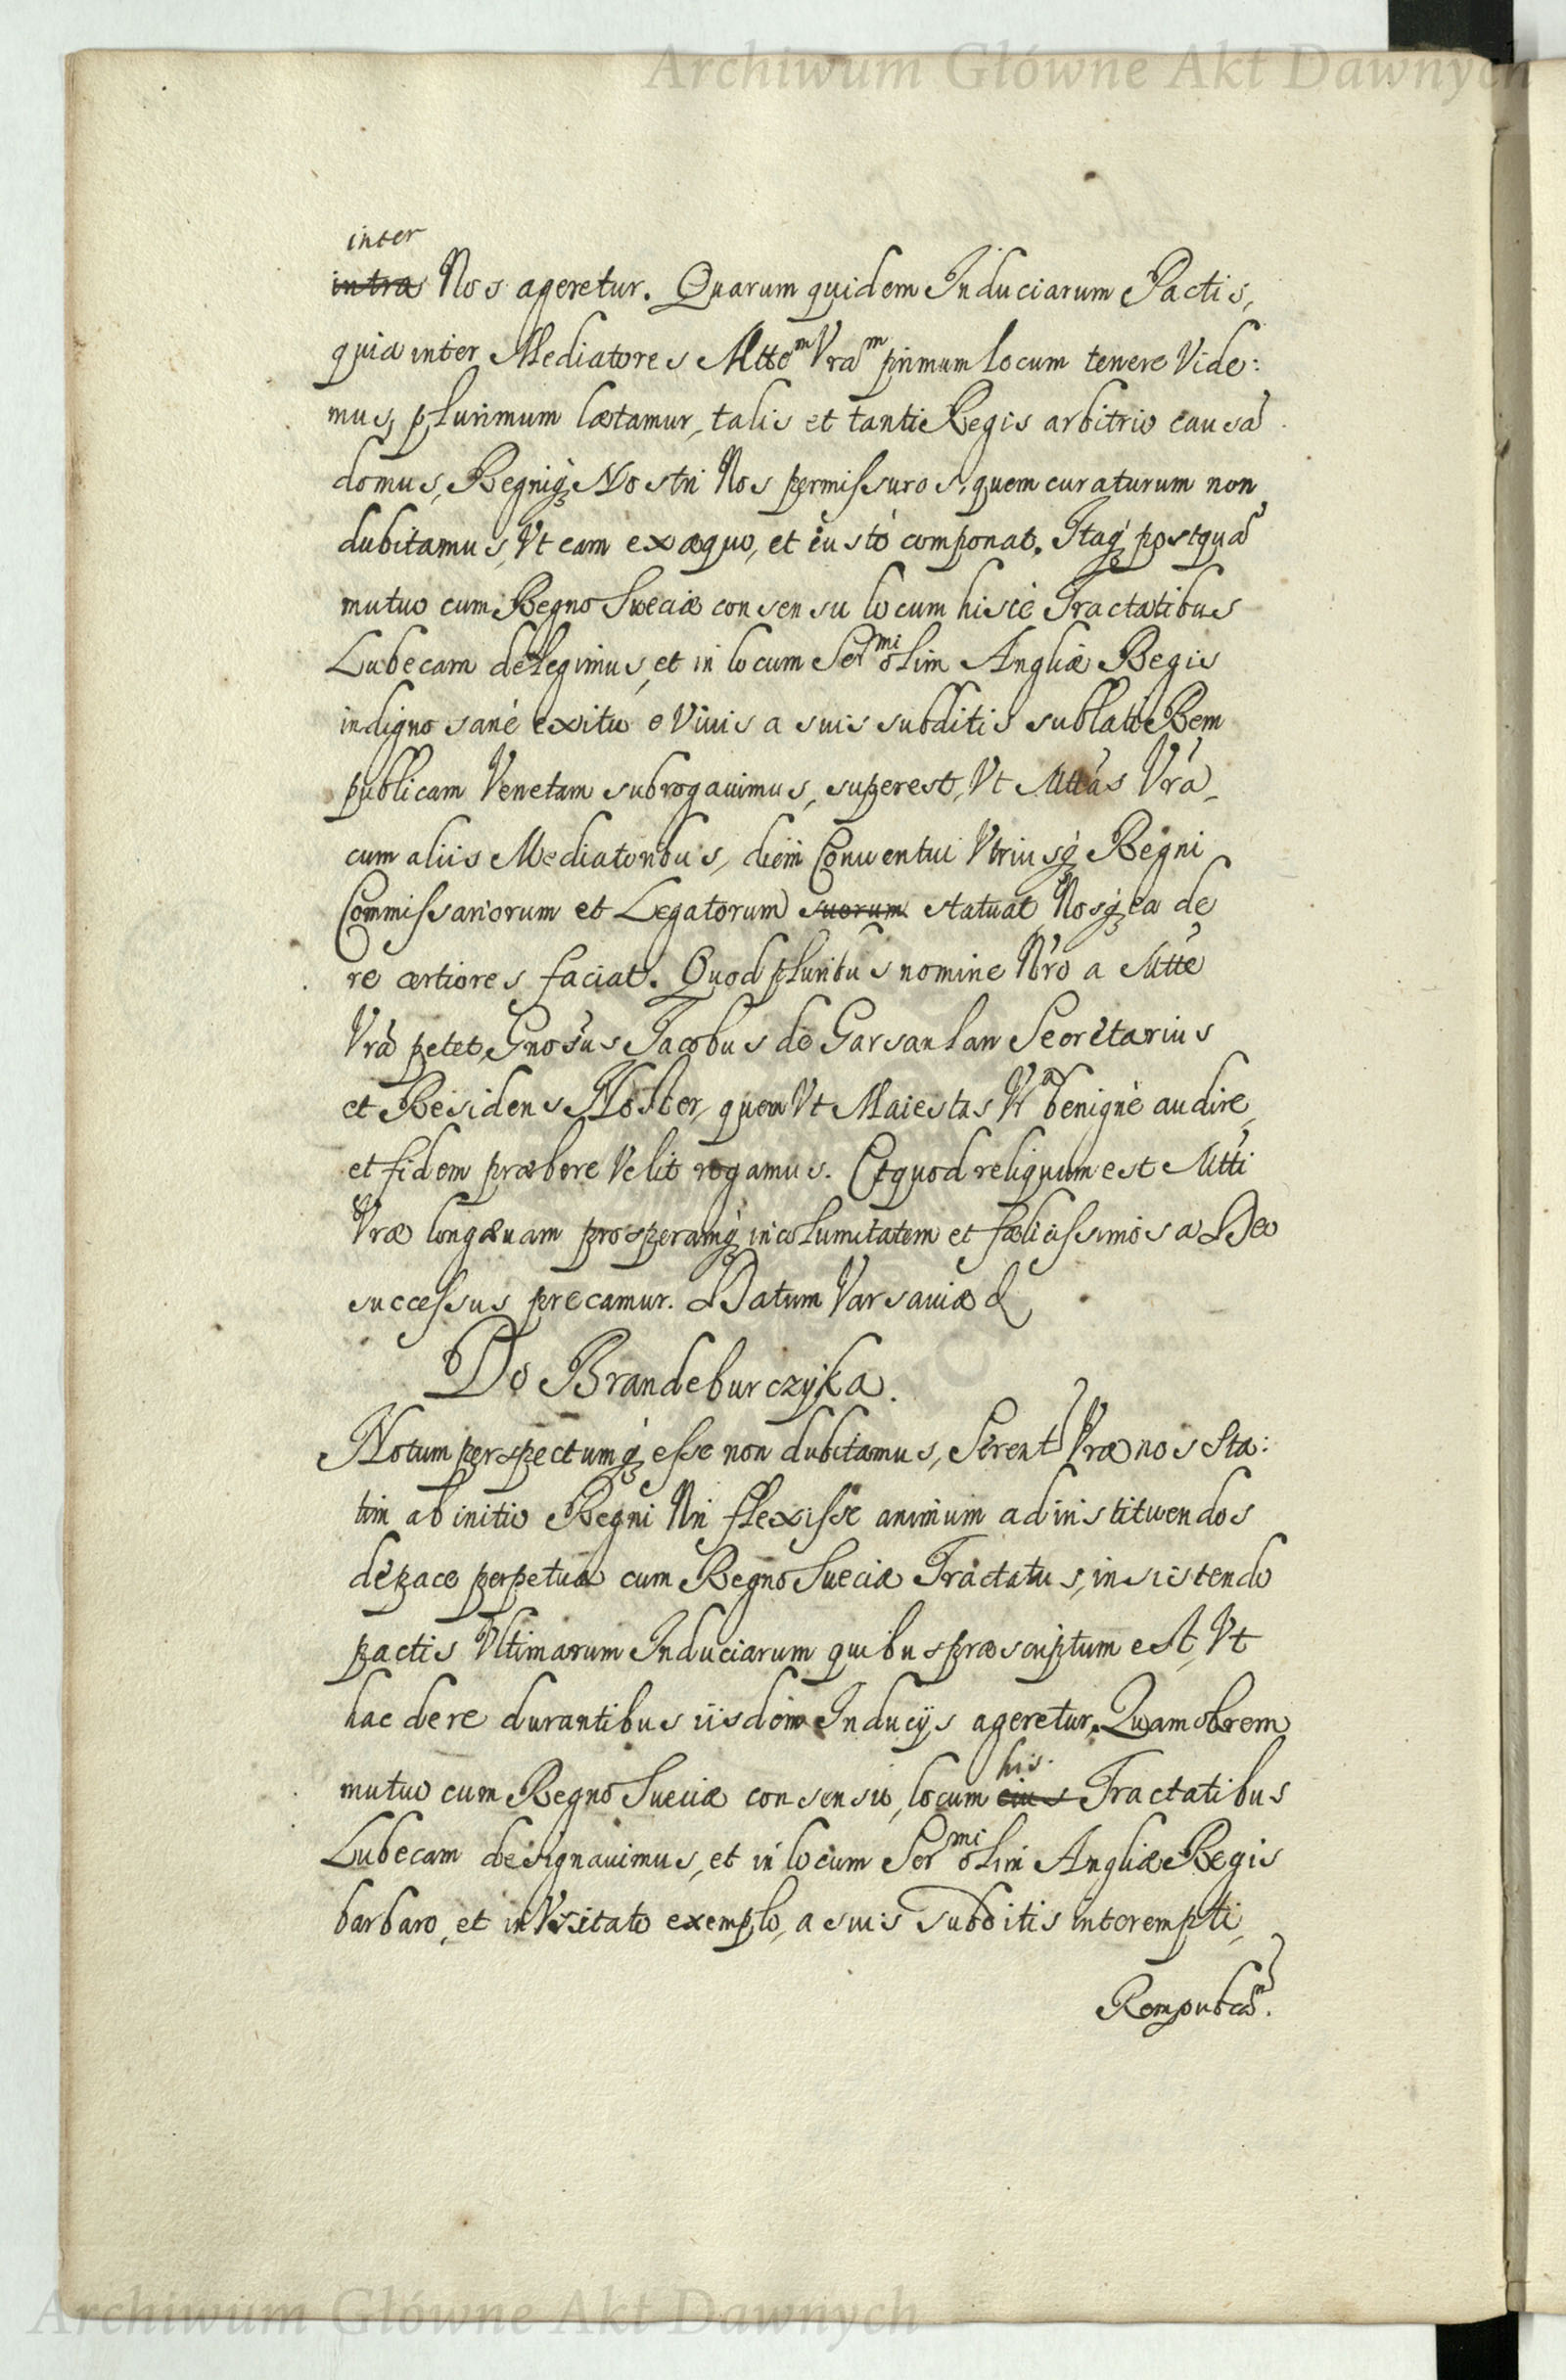 Archiwum Główne Akt Dawnych
inter
intra Nos ageretur. Quarum quidem Induciarum Pactis,
quia inter Mediatores Mtte^m Vra^m primum locum tenere Vide:
mus, plurimum lætamur, talis et tanti Regis arbitrio causã
domus, Regniq Nostri Nos permissuros, quem curaturum non
dubitamus, Vt eam ex æquo, et iusto componat. Itaq postquã
mutuo cum Regno Sueciæ consensu locum hisce Tractatibus
Lubecam delegimus, et in locum Ser^mi olim Angliæ Regis
indigno sanè exitu e Viuis a suis subditis sublati Rem
publicam Venetam subrogauimus, superest, Vt Mttas Vra,
cum aliis Mediatoribus, diem Conuentui Vtriusq Regni
Commissariorum et Legatorum suorum statuat, Nosq ea de
re certiores faciat. Quod pluribus nomine Nro a Mtte
Vra petet, Gnosus Jacobus de Garsanlan Secretarius
et Residens Noster, quem Vt Maiestas V^ra benignè audire,
et fidem præbere Velit rogamus. Et quod reliquum est Mtti
Vræ longæuam prosperamq incolumitatem et fælicissimos a Deo
successus precamur. Datum Varsauiæ d
Do Brandeburczyka.
Notum perspectumq esse non dubitamus, Serent Vræ nos sta:
tim ab initio Regni Nri flexisse animum ad instituendos
de pace perpetua cum Regno Sueciæ Tractatus, insistendo
pactis Vltimarum Induciarum quibus præscriptum est, Vt
hac de re durantibus iisdem Inducijs ageretur. Quamobrem
his
mutuo cum Regno Sueciæ consensu, locum eius Tractatibus
Lubecam designauimus, et in locum Ser^mi olim Angliæ Regis
barbaro, et inVsitato exemplo, a suis subditis interempti,
Rempubca^m.
Archiwum Główne Akt Dawnych